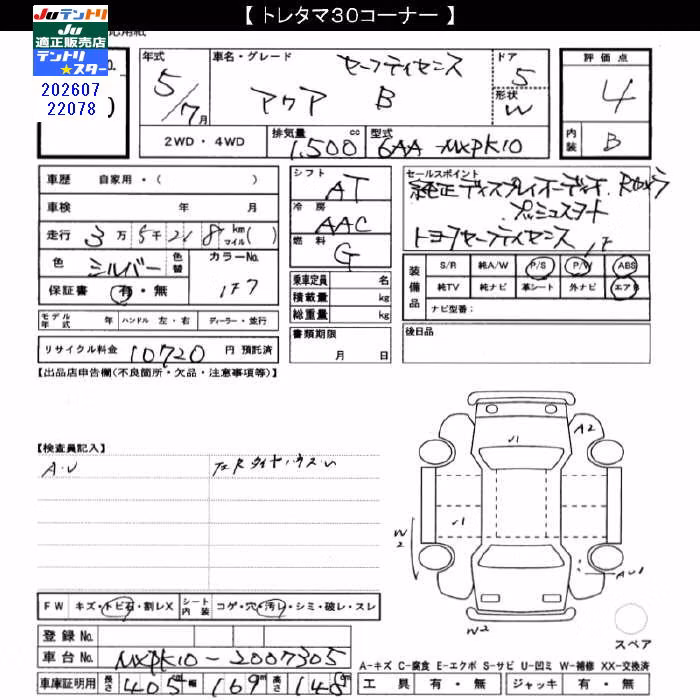 【 トレタマ30コーナー 】
Juテントリ
JU
適正販売店
テントリ
★スター
202607
22078
年式
5/7月
車名・グレード
セーフティセンス
アクア B
ドア
5
形状
W
評価点
4
内装
B
2WD・4WD
排気量
1,500 cc
型式
6AA-MXPK10
車歴 自家用・( )
車検 年 月
走行 3万5千218 km マイル( )
色 シルバー 色替
カラーNo.
1F7
保証書 有・無
モデル年式 年 ハンドル 左・右 ディーラー・並行
リサイクル料金 10720 円 預託済
シフト
AT
冷房
AAC
燃料
G
乗車定員 名
積載量 kg
総重量 kg
書類期限
月 日
セールスポイント
純正ディスプレイオーディオ、Rカメラ
プッシュスタート
トヨタセーフティセンス
装備品
S/R 純A/W P/S P/W ABS
純TV 純ナビ 革シート 外ナビ エアB
ナビ型番:
後日品
【出品店申告欄(不良箇所・欠品・注意事項等)】
【検査員記入】
A・U
A2
U1
U1
W2
W2
FW キズ・トビ石・割レX
シート内装 コゲ・穴・汚レ・シミ・破レ・スレ
登録No.
車台No. MXPK10-2007305
車庫証明用 長さ 405cm 幅 169cm 高さ 148cm
スペア
A-キズ C-腐食 E-エクボ S-サビ U-凹ミ W-補修 XX-交換済
工具 有・無 ジャッキ 有・無